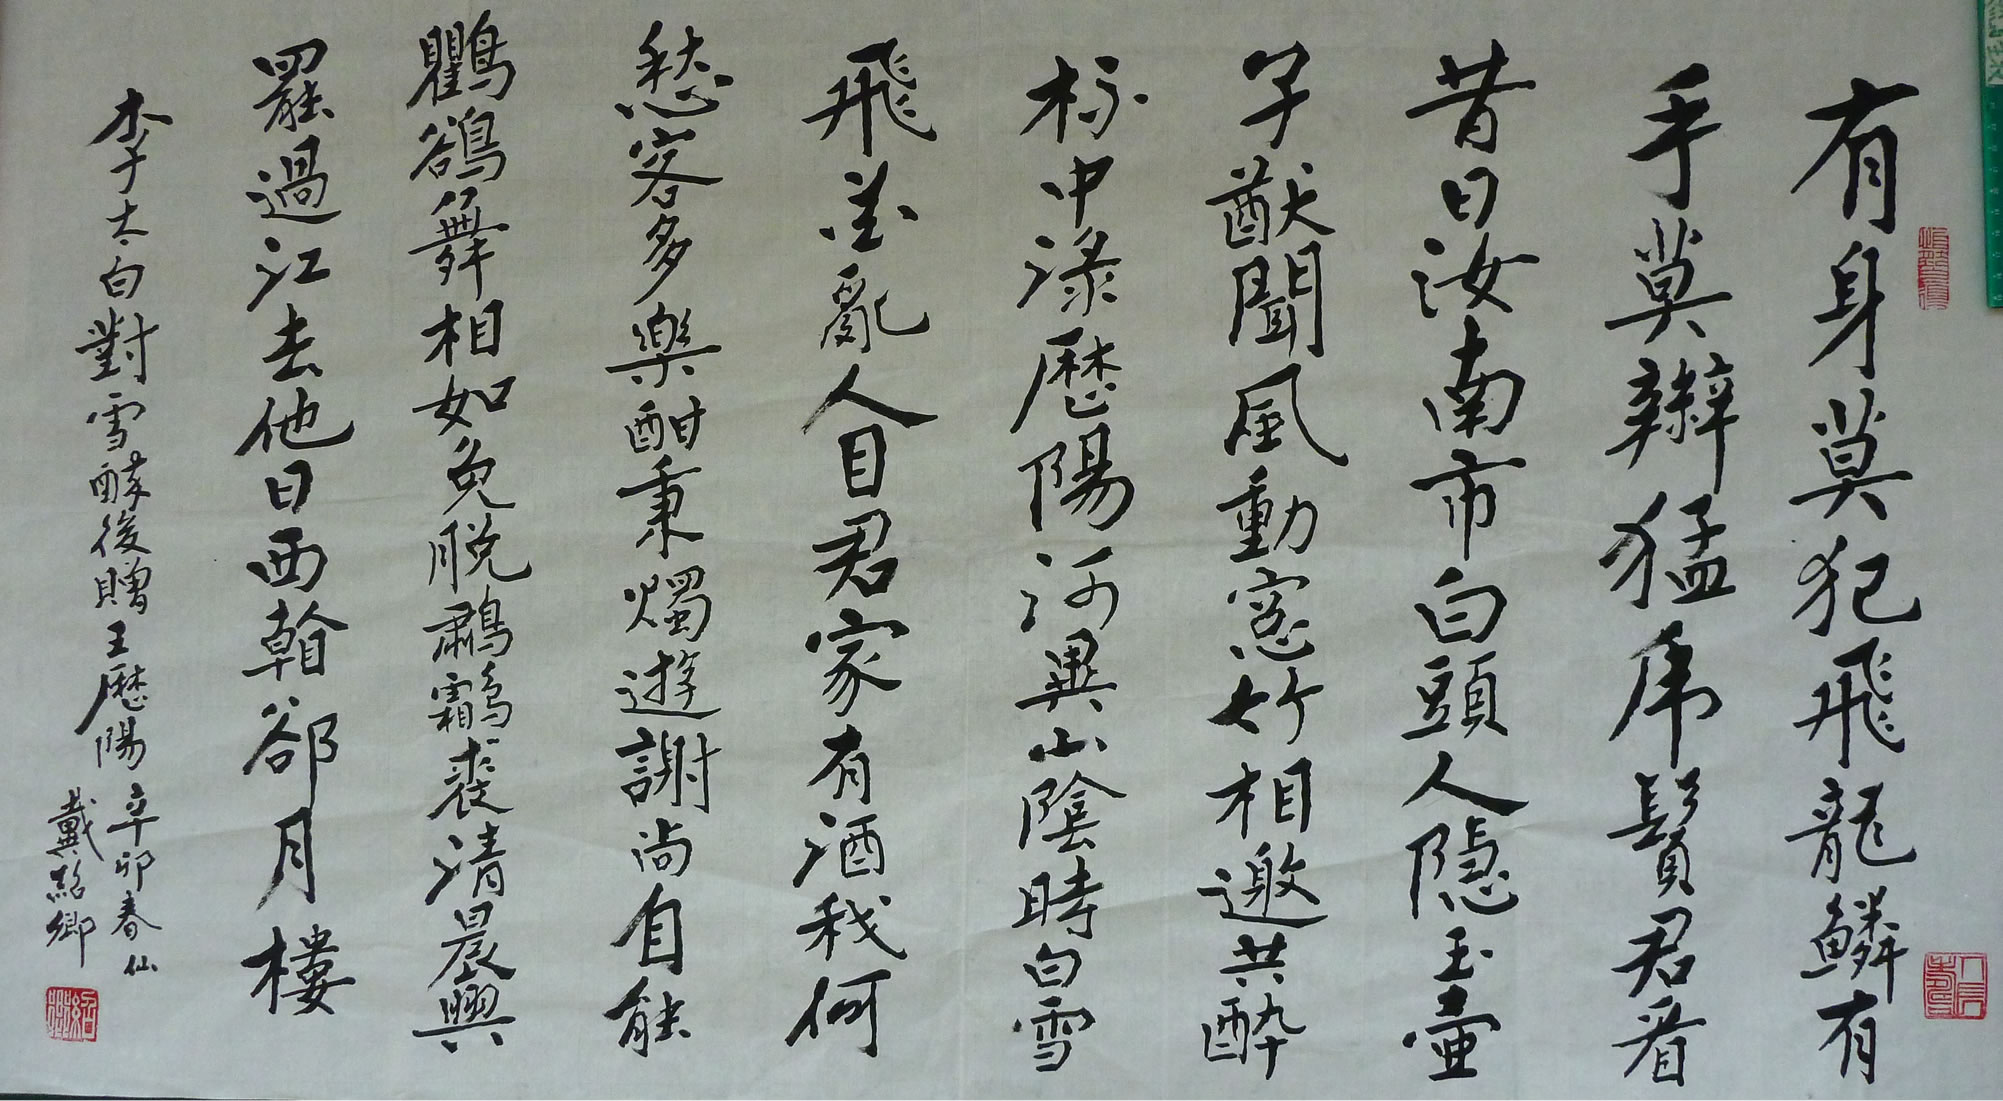 有身莫犯飛龍鱗有
手莫辮猛虎鬚君看
昔日汝南市白頭人隱玉壺
子猷聞風動窓竹相邀共醉
杯中渌歷陽河異山陰時白雪
飛花亂人目君家有酒我何
愁客多樂酣秉燭遊謝尚自能
鸜鵒舞相如免脫鷫鸘裘清晨興
罷過江去他日西看卻月樓
李太白對雪醉後贈王歷陽
辛卯春仙
戴紹卿